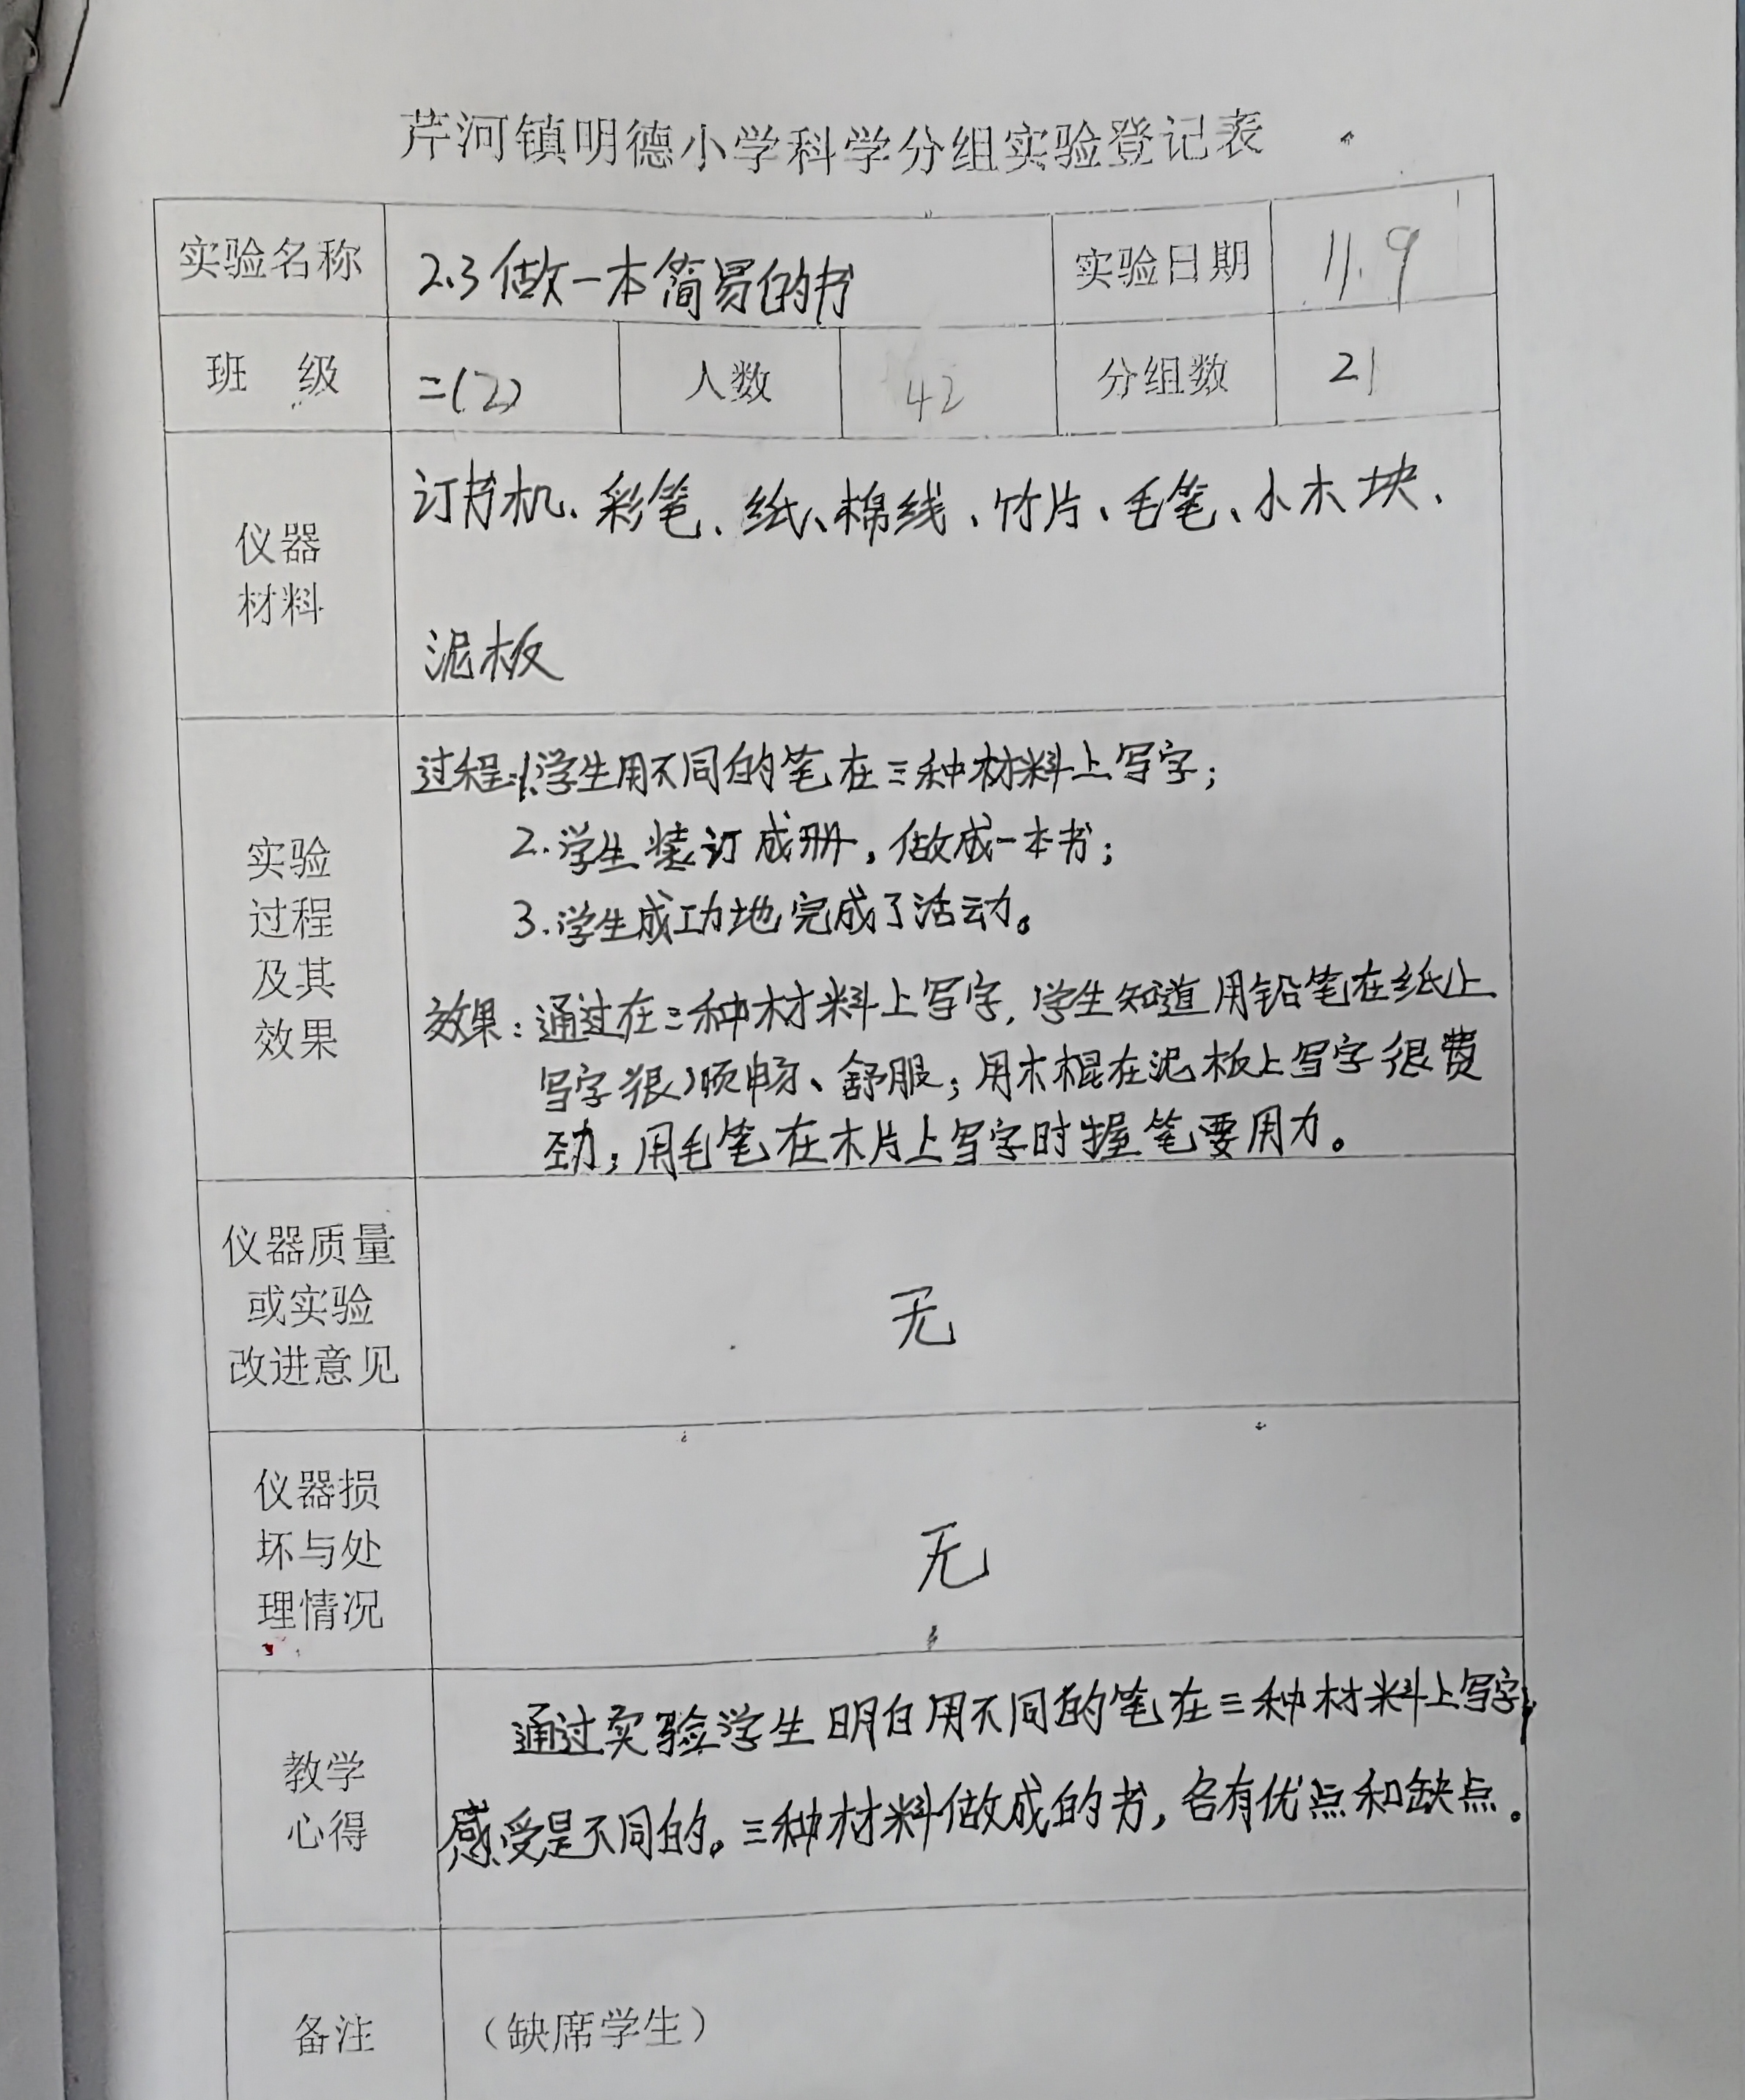 芹河镇明德小学科学分组实验登记表
实验名称 2.3做一本简易的书 实验日期 11.9
班 级 二(2) 人数 42 分组数 21
仪器
材料
订书机、彩笔、纸、棉线、竹片、毛笔、小木块、
泥板
实验
过程
及其
效果
过程:1.学生用不同的笔在三种材料上写字;
2.学生装订成册,做成一本书;
3.学生成功地完成了活动。
效果:通过在三种材料上写字,学生知道用铅笔在纸上
写字很顺畅、舒服;用木棍在泥板上写字很费
劲;用毛笔在木片上写字时握笔要用力。
仪器质量
或实验
改进意见
无
仪器损
坏与处
理情况
无
教学
心得
通过实验学生明白用不同的笔在三种材料上写字,
感受是不同的。三种材料做成的书,各有优点和缺点。
备注 (缺席学生)